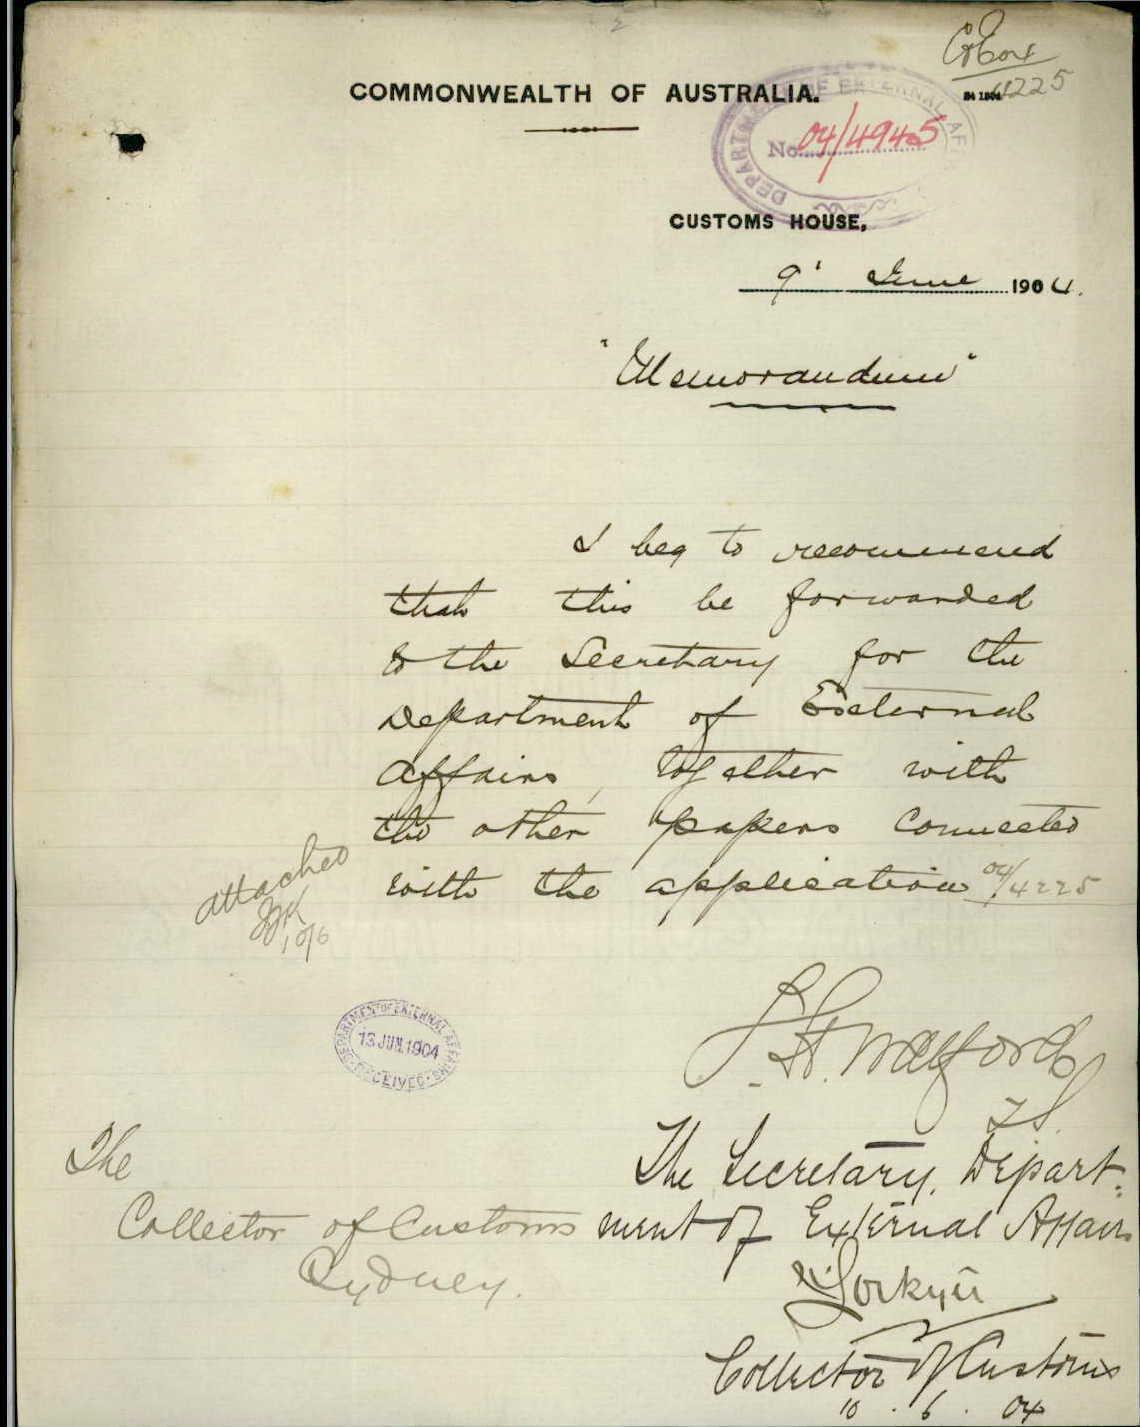 4225
COMMONWEALTH OF AUSTRALIA.
DEPARTMENT OF EXTERNAL AFF
No. 04/4945
CUSTOMS HOUSE,
9' June 1904.
"Memorandum"
I beg to recommend
that this be forwarded
to the Secretary for the
Department of External
Affairs, together with
the other papers connected
with the application 04/4225
attached
10/6
DEPARTMENT OF EXTERNAL AFFAIRS
13 JUN. 1904
RECEIVED
The
Collector of Customs
Sydney.
The Secretary, Depart:
ment of External Affairs
Collector of Customs
10.6.04